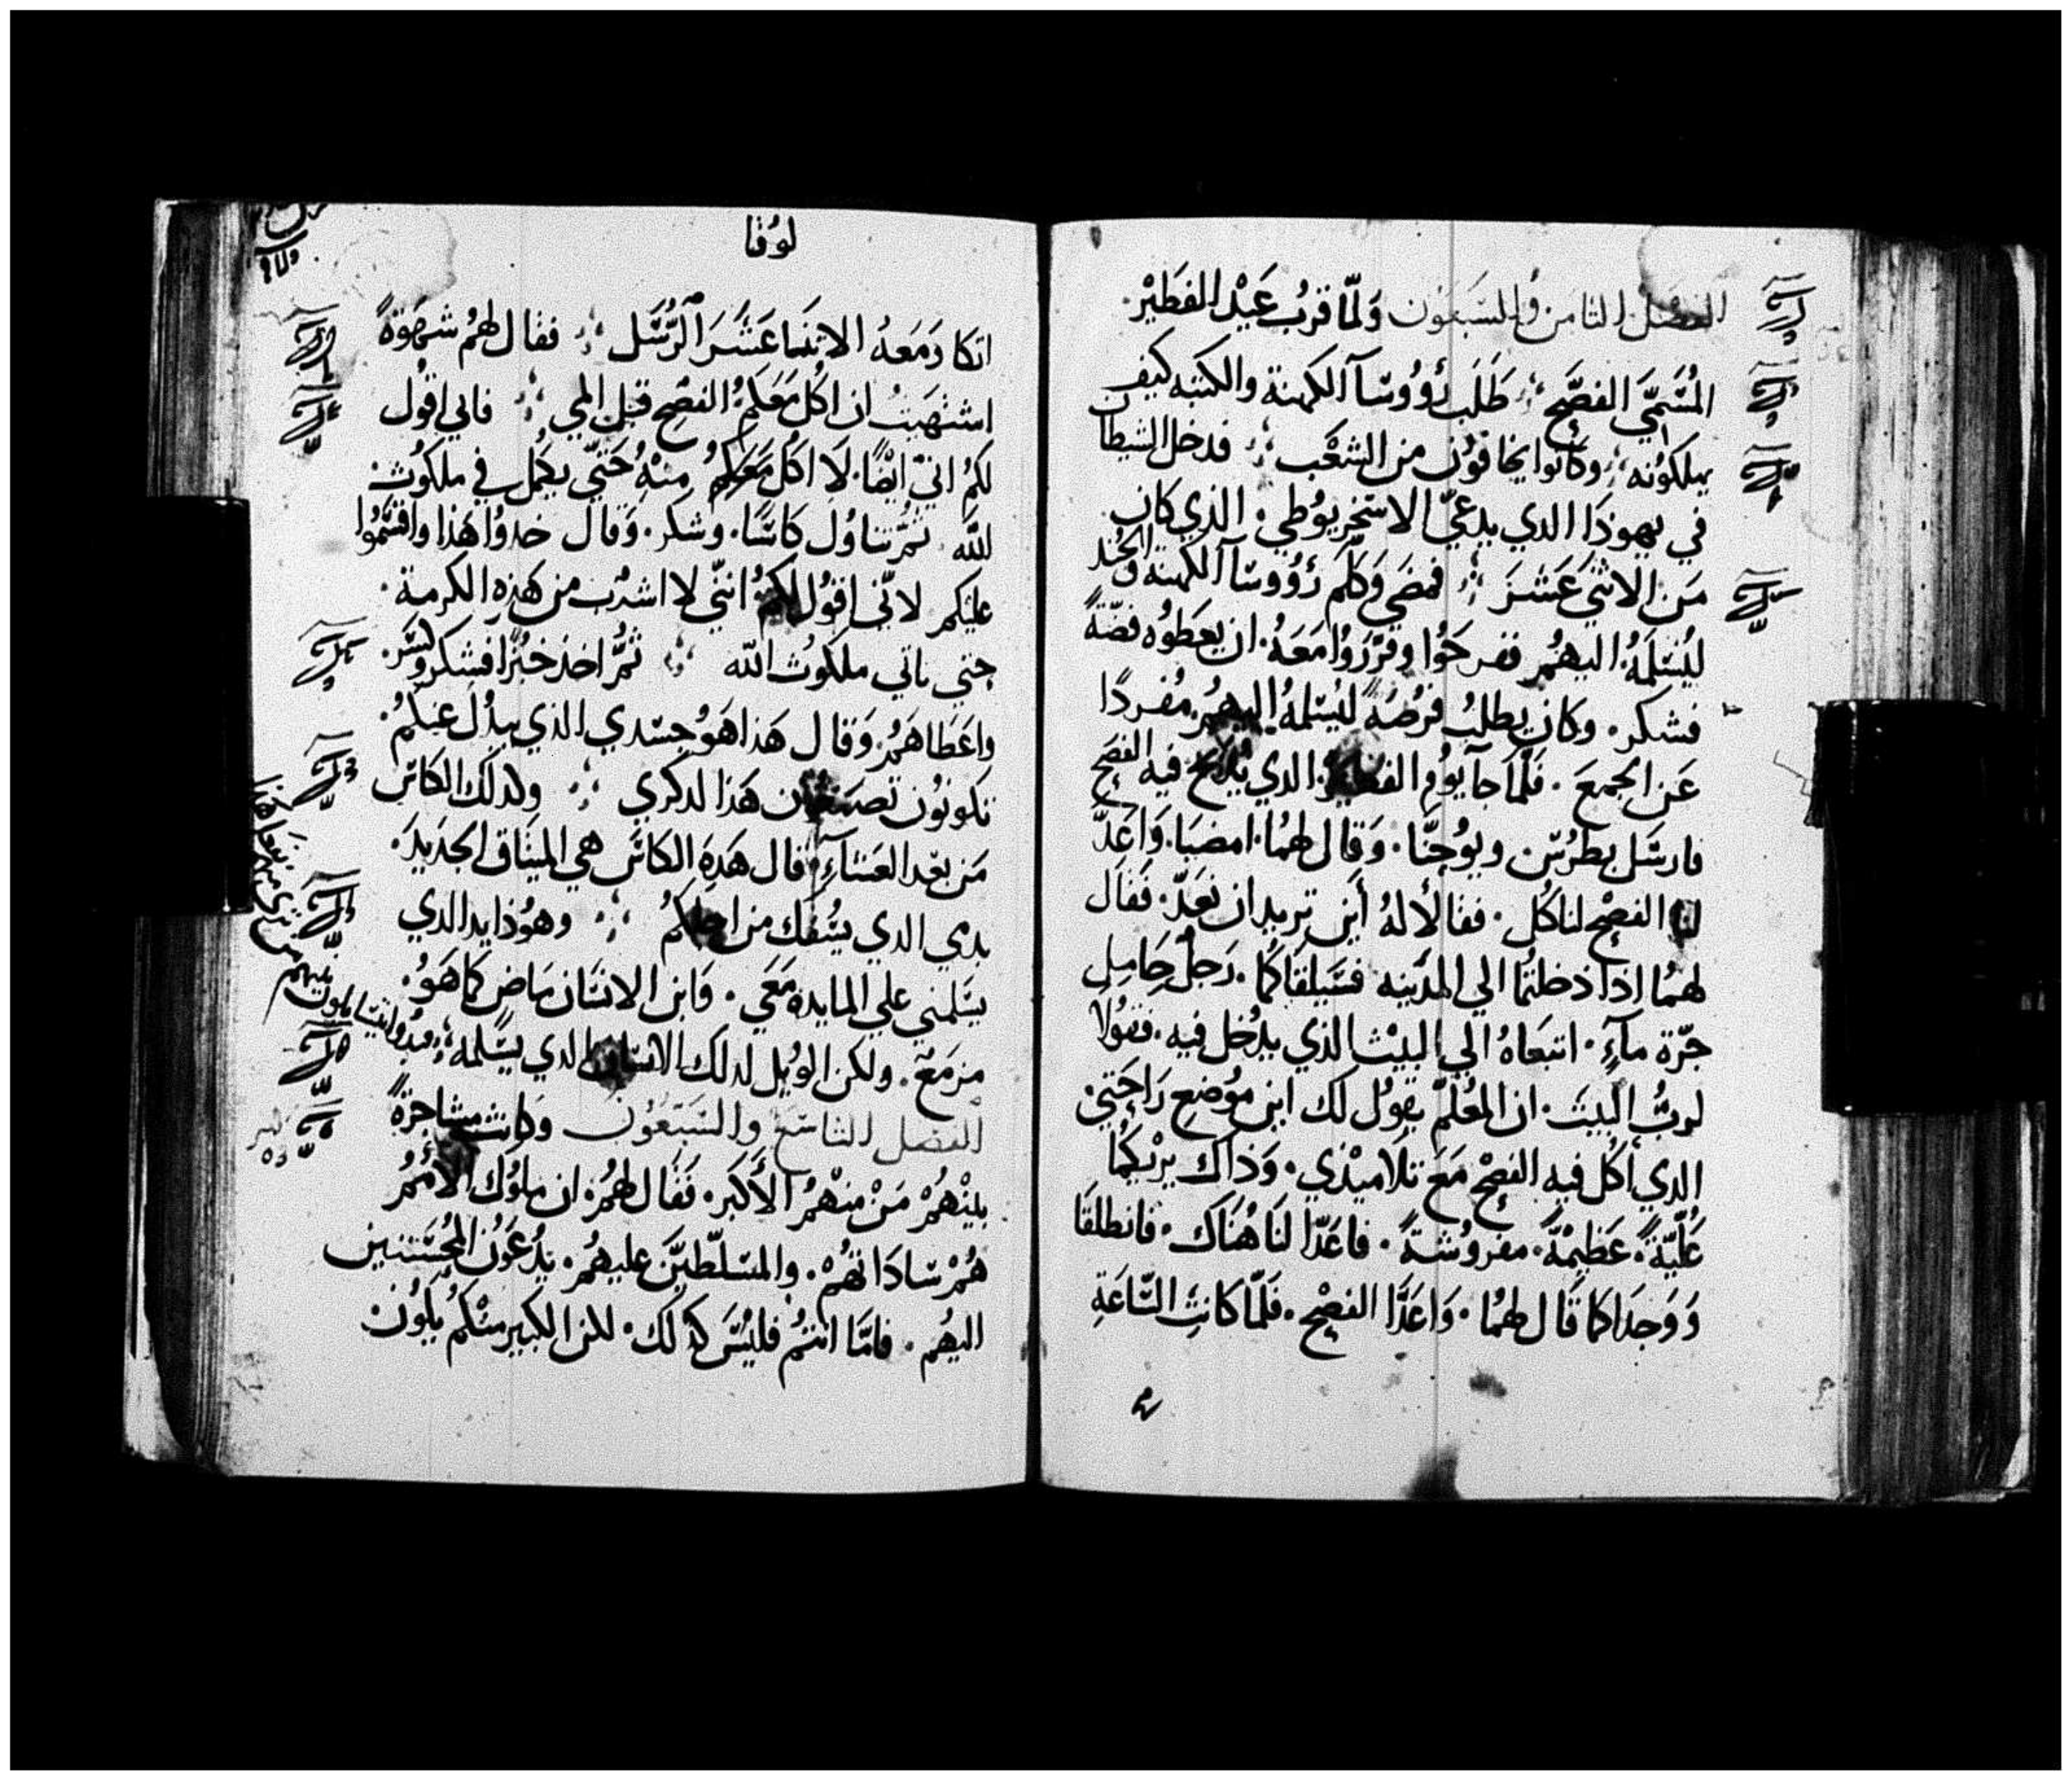 الفصل الثامن والسبعون وَلمّا قربُ عَيْد الفطيْر
المُسَمّيَ الفصَّح طَلَبَ رُؤوسَآ الكهنة والكتبه كيف
يهلكوُنه وكانوا يخافوُن من الشعْب فدخل الشيطان
في يهوذَا الدي يدعيّ الاسْخريوُطي. الذي كان
مَن الاثنيَ عَشرَ فمضي وَكلّم رُؤوسَآ الكهنة والجُند
ليُسَلمَهُ اليهُم ففرحَوُا وقرّرَوُا مَعَهُ. ان يعَطوُه فضّةً
فشكر. وكان يطلبُ فرُصَهً ليُسَلمهُ اليهُم مُفردًا
عَن الجمعَ. فلّما جآ يوُم الفطير الدي يُذبح فيه الفصَح
فارسَل بطرُسَ ويوُحنَّا. وَقال لهمُا. امضيَا. وَاعَدّ
لنا الفصْح لناكُل. فقالأ لهُ أيَن تريد ان نعَدّ. فَقاَل
لهمُا اذا دخلتمُا الي المدَينه فسَيلقاكمُا. رَجلُ حَامِلِ
جرّة مآءٍ. اتبعَاهُ الي البيْت الذي يدُخل فيه. فقوُلا
لربُّ البيت. ان المعُلّمَ يقوُل لك اين موُضع رَاحَتيْ
الدي اكُل فيه الفصْح مَعَ تلاميْذي. وَذاك يرْيكمُا
عَليّةً. عَظيمْةً. مفروُشةً. فاعَدّا لنَا هُنَاك. فانطلقَا
وَوَجدَا كما قَال لهمُا. وَاعَدَّا الفصْح. فَلمّا كانتِ السَّاعَةِ
لوُقا
اتكا وَمَعَهُ الاثنَا عَشَرَ الرُّسَل فقال لهمُ شهوَةً
اشتهيَتُ ان اكُل مَعَكمُ الفصْح قبل المي فاني اقوُل
لكمُ انيّ ايضًا. لَا اكُل مَعَكمُ مِنهُ حَتيّ يكمُل في ملكوُت
اللَّه ثمُّ تناوُل كاسًا. وشكر. وَقال خدوُا هَذا واقسَموُا
عليَكم لانّي اقوُل لكمُ انيّ لا اشرُب من هَذه الكرمة.
حتي ياتي ملكوُت الله ثمُّ اخذ خبُزاً فشكر وكسَر.
واعَطاهَمُ. وَقال هَذا هَوُ جسَدي الذي يبدُل عَنكمُ.
تكونوُن تصنعوُن هَذا لدكري وكدلك الكاسَ
مَن بعَد العَشآءِ قال هَدهِ الكاسَ هي الميثاق الجَديدَ.
بدمي الدي يسُفك من اجلكمُ وهوُذا يد الدي
يسَلمني علي المايده مَعَي. وَابن الانسَان مَاض كما هَوُ.
مزمَعَ. ولكن الوُيل لدلك الانسَان الدي يسَلمه فبدُوا يتسَايلون بينهم
من تري منهم يفعَل هَذا
الفصل التاسَع والسَبَعوُن وَكانت مشاجرةً
بيْنهُمْ مَنْ منهْمُ الأكبر. فَقال لهمُ. ان ملوُك الأممُر
همُْ سَادَاتهُمْ. والمسَلّطيَن عليهمُ. يدُعَوُن المحُسَنين
اليهُم. فامّا انتمُ فليُسَ كدلك. للن الكبير منكْمُ يكوُن